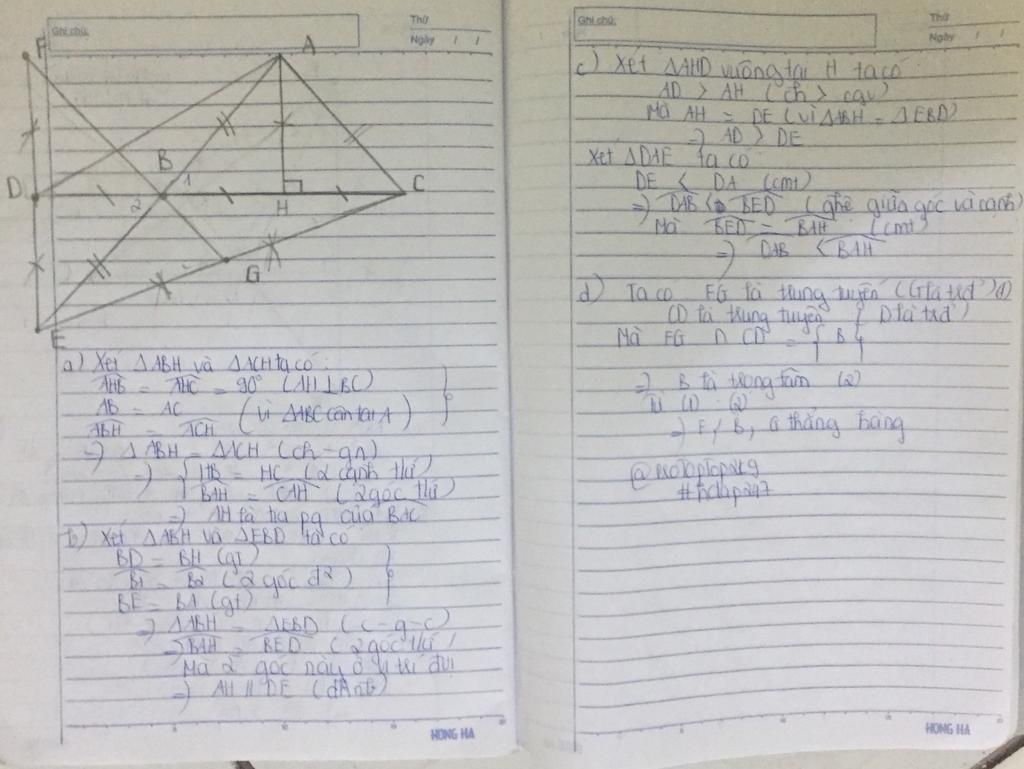 Ghi chú:
Thứ
Ngày / /
F
A
B
1
D
2
H
C
G
E
a) Xét ΔABH và ΔACH ta có:
AHB = AHC = 90° (AH ⊥ BC)
AB = AC (vì ΔABC cân tại A)
ABH = ACH
=> ΔABH = ΔACH (ch - gn)
=> { HB = HC (2 cạnh tứ)
BAH = CAH (2 góc tứ)
=> AH là tia pg của BAC
b) Xét ΔABH và ΔEBD ta có
BD = BH (gt)
B1 = B2 (2 góc đ2)
BE = BA (gt)
=> ΔABH = ΔEBD (c-g-c)
=> BAH = BED (2 góc tứ)
Mà 2 góc này ở vị trí
=> AH // DE
HONG HA
Ghi chú:
Thứ
Ngày / /
c) Xét ΔAHD vuông tại H ta có
AD > AH (ch > cgv)
Mà AH = DE (vì ΔABH = ΔEBD)
=> AD > DE
Xét ΔDAE ta có
DE < DA (cmt)
=> DAB < BED (qhệ giữa góc và cạnh)
Mà BED = BAH (cmt)
=> DAB < BAH
d) Ta có FG là trung tuyến (G là trđ) (1)
CD là trung tuyến ( D là trđ)
Mà FG ∩ CD = { B }
=> B là trọng tâm (2)
Từ (1) (2)
=> F, B, G thẳng hàng
HONG HA